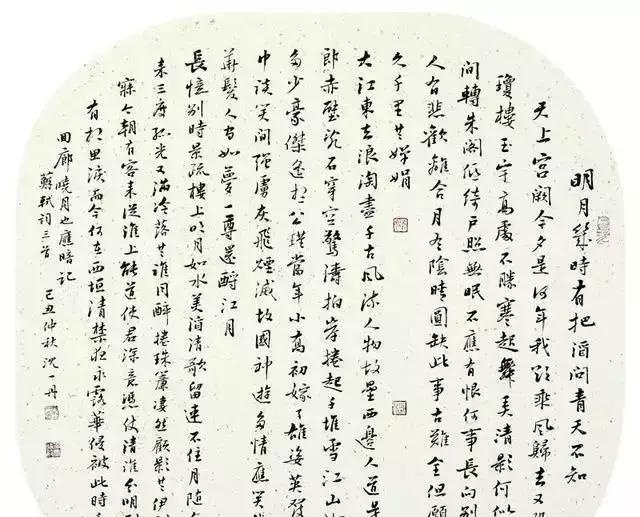 明月幾時有把酒問青天不知
天上宮闕今夕是何年我欲乘風歸去又恐
瓊樓玉宇高處不勝寒起舞弄清影何似
間轉朱閣低綺戶照無眠不應有恨何事長向別
人有悲歡離合月有陰晴圓缺此事古難全但願
久千里共嬋娟
大江東去浪淘盡千古風流人物故壘西邊人道是
郎赤壁亂石穿空驚濤拍岸捲起千堆雪江山
多少豪傑遙想公瑾當年小喬初嫁了雄姿英發
巾談笑間強虜灰飛煙滅故國神遊多情應笑
華髮人如夢一尊還酹江月
長憶別時景疏樓上明月如水美酒清歌留連不住月隨
來三度孤光又滿冷落共誰同醉捲珠簾淒然顧影共伊
寐今朝有客來從淮上能道使君深意憑仗清淮分明
有相思淚而今何在西垣清禁夜永露華侵被此時
回廊曉月也應暗記
蘇軾詞三首 己丑仲秋沈一丹